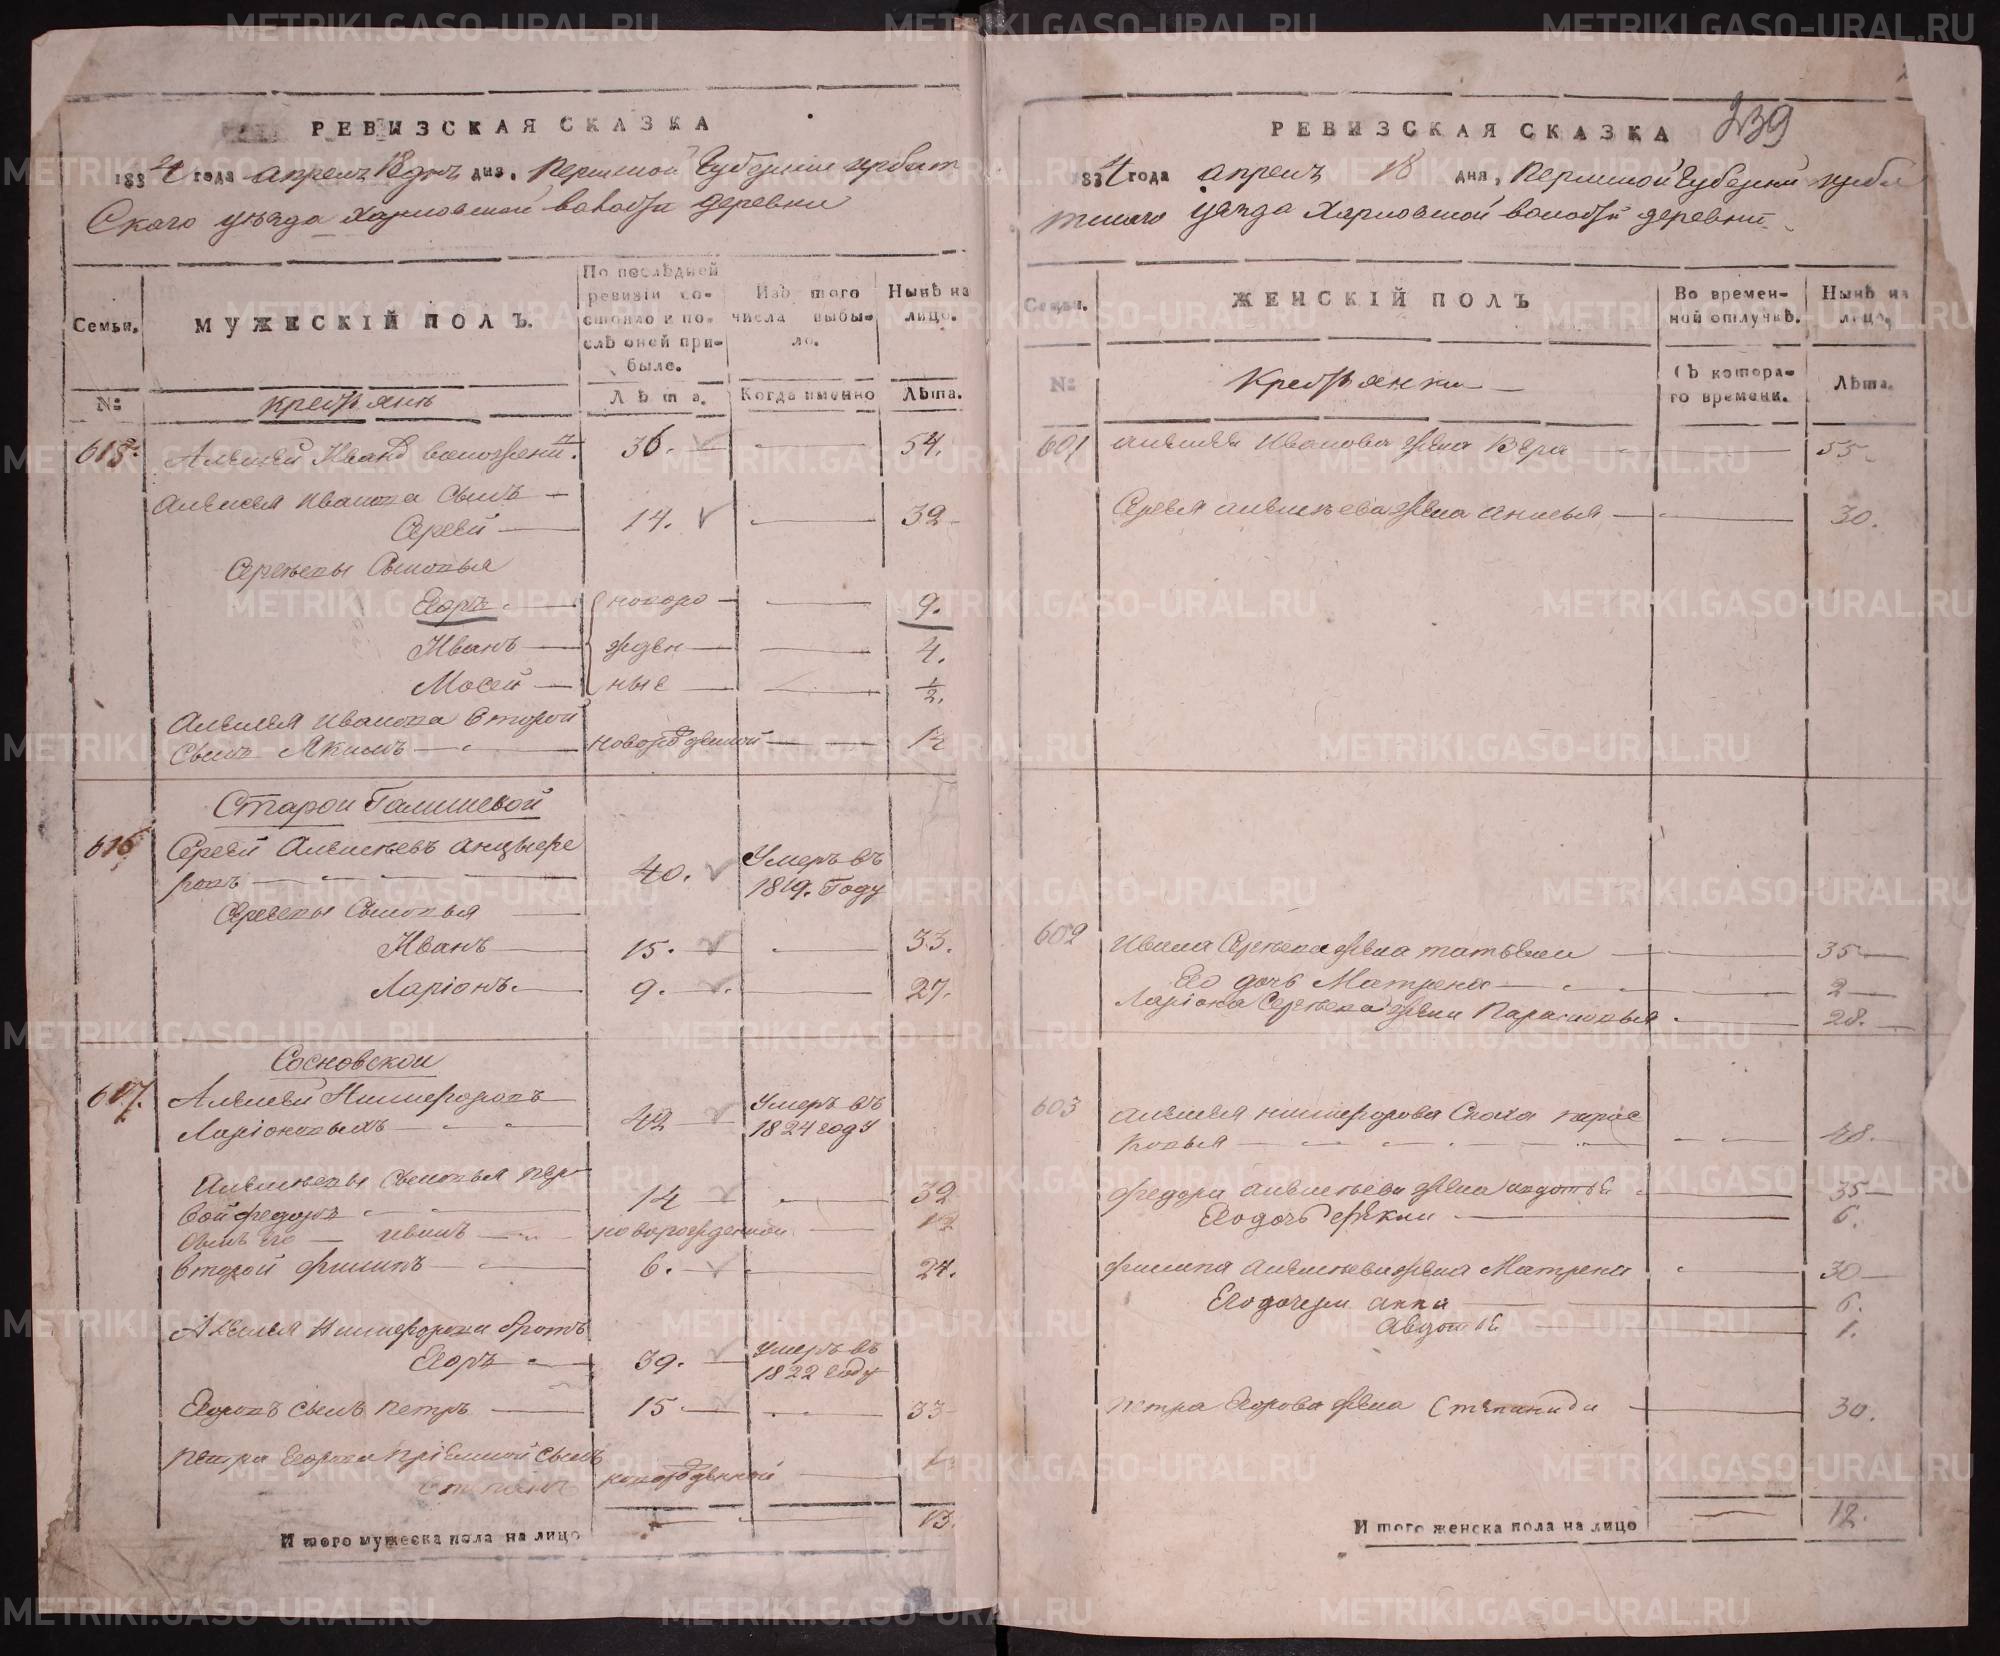 РЕВИЗСКАЯ СКАЗКА
1834 года апреля 18 дня. Пермской Губернии Ирбит
Скаго уезда Харловской волости деревни
Семьи.
МУЖЕСКІЙ ПОЛЪ.
По послѣдней ревизіи состояло и послѣ оной прибыло.
Изъ того числа выбыло.
Нынѣ на лицо.
№
крестьянъ
Лѣта.
Когда именно
Лѣта.
615. Алексей Иванов 36. 54.
Алексея Иванова Сынъ
Сергей 14. 32
Сергеевы Сыновья
Егоръ новоро 9.
Иванъ жден 4.
Мосей ные 1/2.
Алексея Иванова второй
Сынъ Якимъ новорожденной 12
Старой Галишевой
616 Сергей Алексеевъ Анцыфе
ровъ 40. Умеръ въ 1819. Году
Сергеевы Сыновья
Иванъ 15. 33.
Ларіонъ 9. 27.
Сосновской
617. Алексей Никифоровъ
Ларіоновыхъ 42 Умеръ въ 1824 году
Алексеевы Сыновья пер
вой федоръ 14 32
Сынъ его Иванъ новорожденной 1/2
Второй филипъ 6. 24.
Алексея Никифорова братъ
Егоръ 39. Умеръ въ 1822 Году
Егоровъ Сынъ Петръ 15 33
Петра Егорова пріемной Сынъ
Степанъ новорожденной
Итого мужеска пола на лицо 13.
РЕВИЗСКАЯ СКАЗКА
239
1834 года апреля 18 дня, Пермской Губернии Ирби
тскаго уезда Харловской волости деревни
Семьи.
ЖЕНСКІЙ ПОЛЪ
Во временной отлучкѣ.
Нынѣ на лицо.
№
Крестьянки
Съ котораго времени.
Лѣта.
601 Алексея Иванова жена Вера 55
Сергея Алексеева жена Анисья 30.
602 Ивана Сергеева жена Татьяна 35
Его дочь Матрена 2
Ларіона Сергеева жена Парасковья 28.
603 Алексея Никифорова Сноха Парас
ковья 48.
Федора Алексеева жена Авдотья 35
Его дочь Фекла 6.
Филипа Алексеева жена Матрена 30
Его дочери Анна 6.
Авдотья 1.
Петра Егорова жена Степанида 30.
Итого женска пола на лицо 12.
METRIKI.GASO-URAL.RU